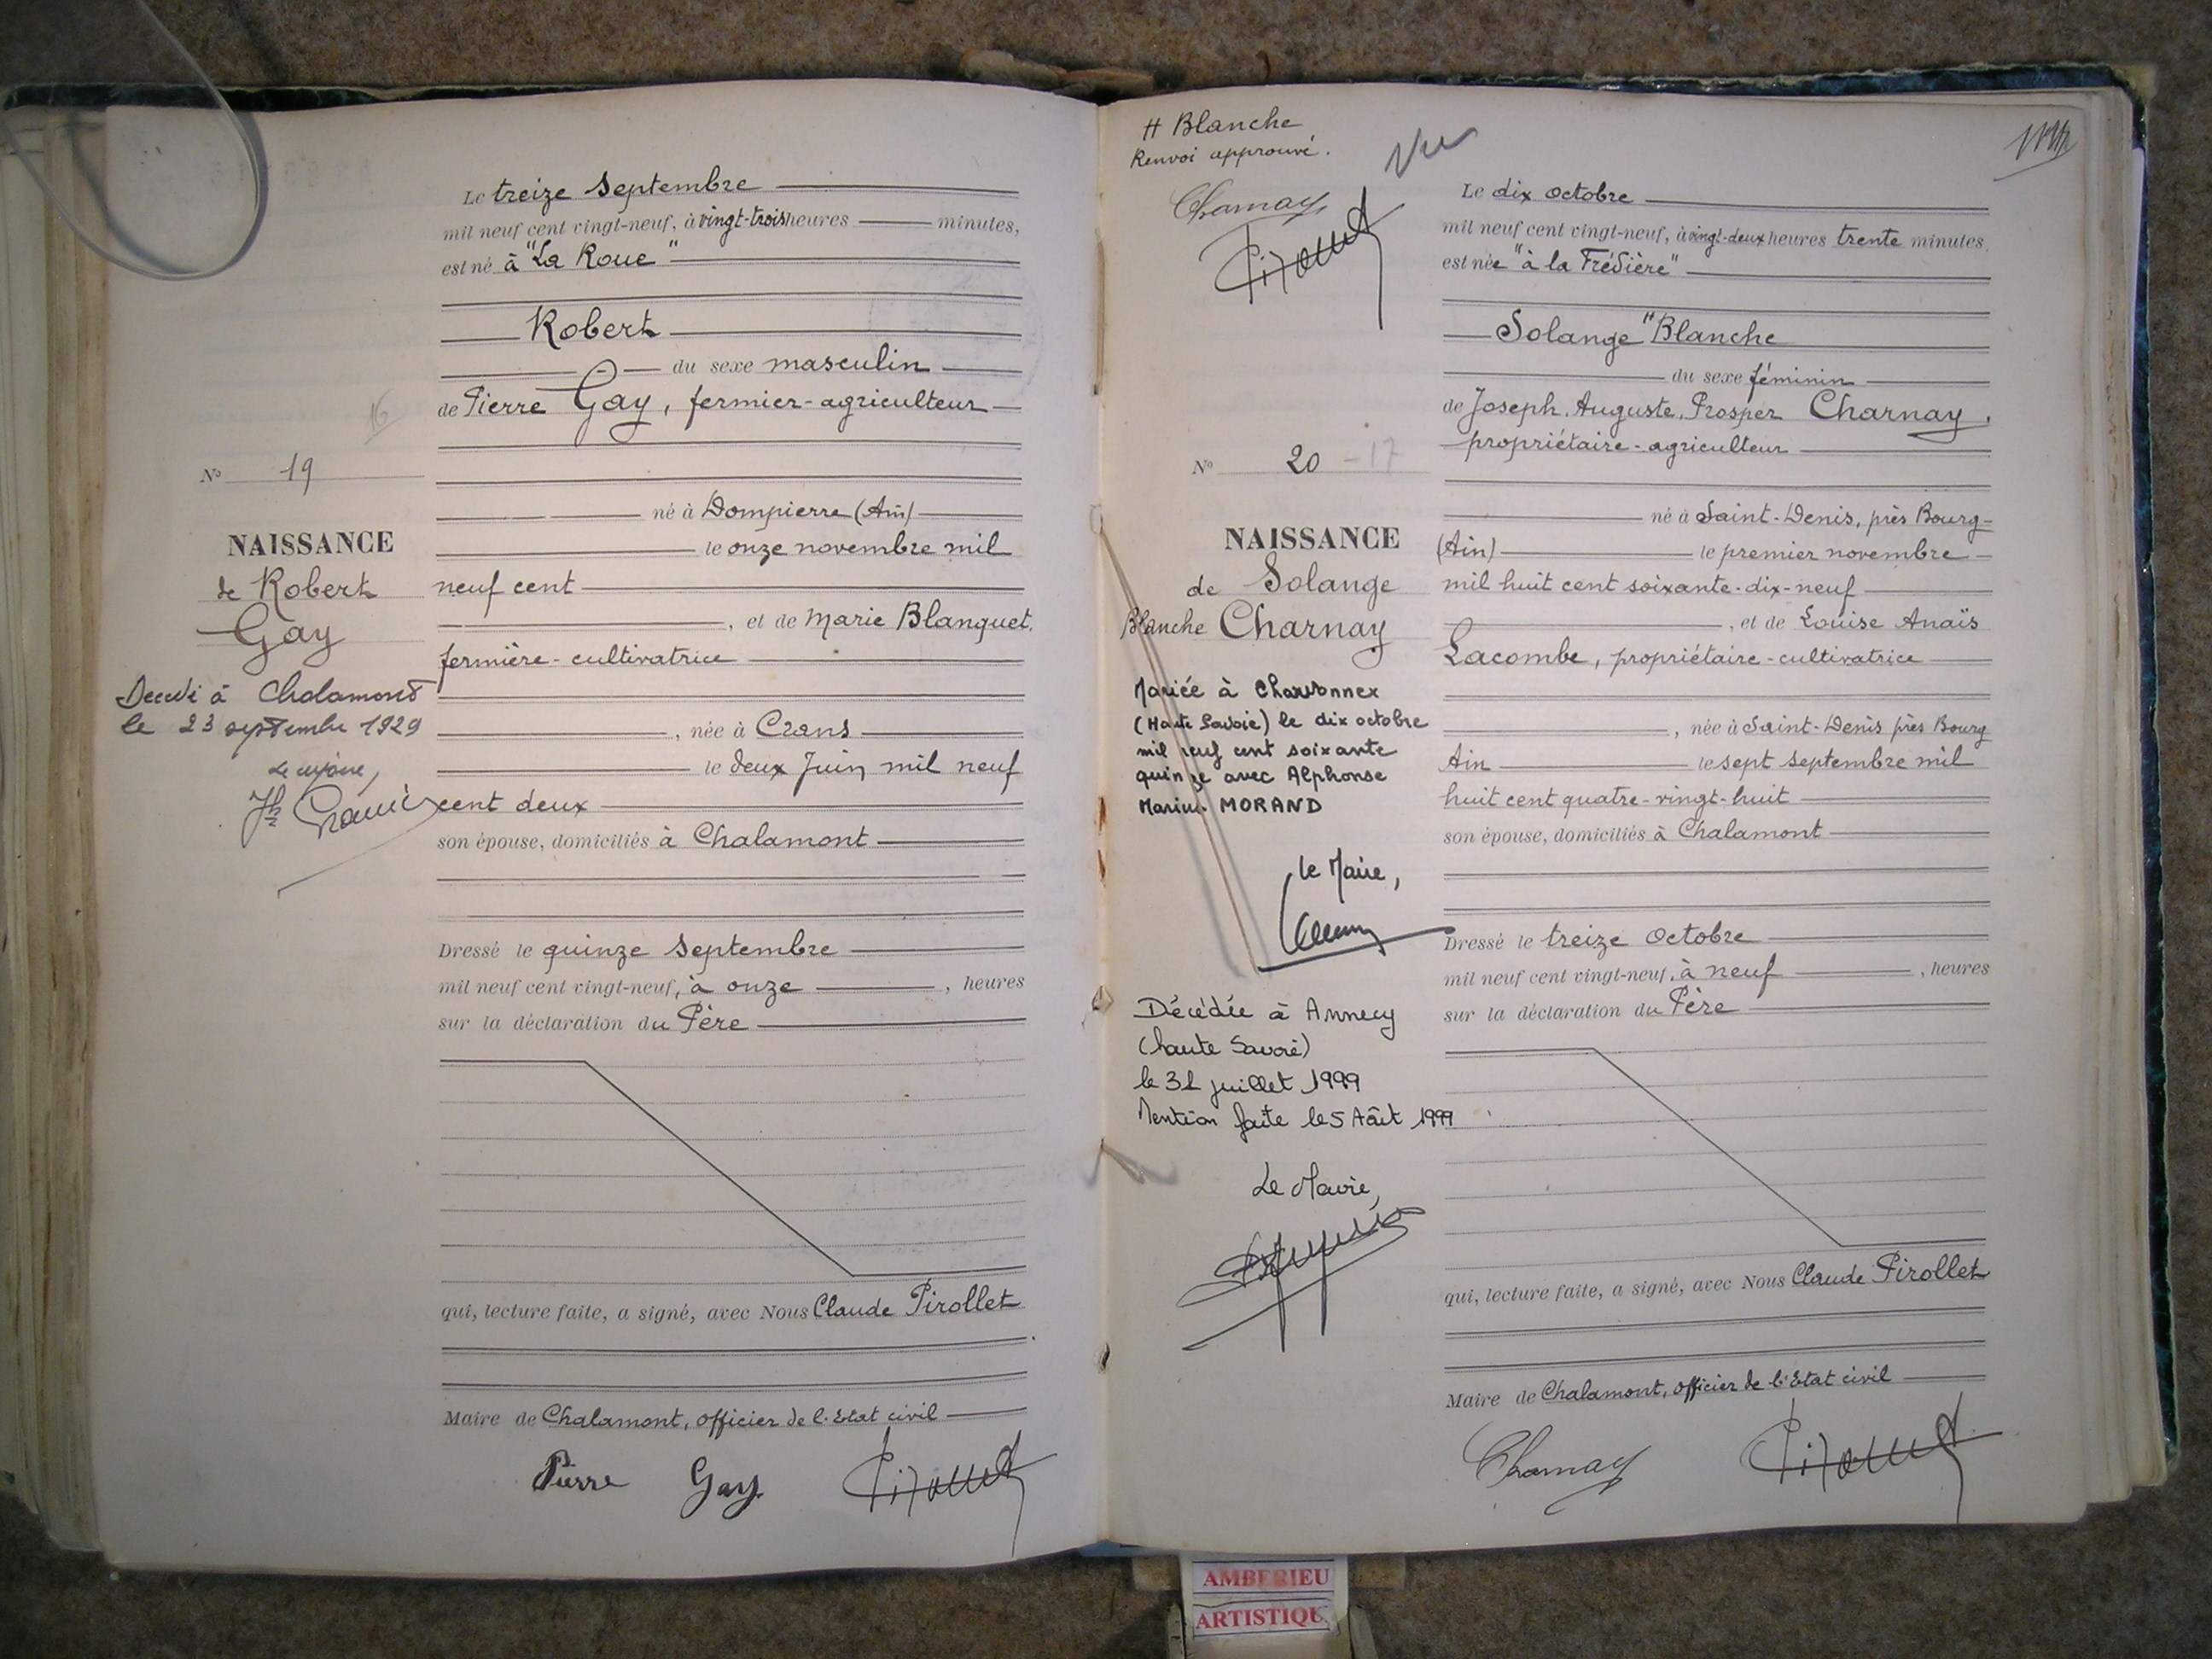 Le treize Septembre
mil neuf cent vingt-neuf, à vingt-trois heures minutes,
est né à "La Roue"
Robert
du sexe masculin
de Pierre Gay, fermier-agriculteur
16
N° 19
né à Dompierre (Ain)
NAISSANCE
le onze novembre mil
de Robert
neuf cent
Gay
, et de Marie Blanquet,
fermière-cultivatrice
Décédé à Chalamont
le 23 septembre 1929
, née à Crans
le deux Juin mil neuf
cent deux
son épouse, domiciliés à Chalamont
Dressé le quinze Septembre
mil neuf cent vingt-neuf, à onze , heures
sur la déclaration du Père
qui, lecture faite, a signé, avec Nous Claude Pirollet
Maire de Chalamont, officier de l'Etat civil
Pierre Gay
# Blanche
Renvoi approuvé.
Vu
Charnay
Le dix octobre
mil neuf cent vingt-neuf, à vingt-deux heures trente minutes,
est née "à la Frédière"
Solange " Blanche
du sexe féminin
de Joseph, Auguste, Prosper Charnay,
propriétaire-agriculteur
N° 20 - 17
né à Saint-Denis, près Bourg-
NAISSANCE
(Ain) le premier novembre
de Solange
mil huit cent soixante-dix-neuf
Blanche Charnay
, et de Louise Anaïs
Lacombe, propriétaire-cultivatrice
Mariée à Charvonnex
(Haute Savoie) le dix octobre
mil neuf cent soixante
quinze avec Alphonse
Marius MORAND
le Maire,
, née à Saint-Denis près Bourg
Ain le sept Septembre mil
huit cent quatre-vingt-huit
son épouse, domiciliés à Chalamont
Dressé le treize Octobre
mil neuf cent vingt-neuf, à neuf , heures
sur la déclaration du Père
Décédée à Annecy
(haute Savoie)
le 31 juillet 1999
Mention faite le 5 Août 1999
Le Maire,
qui, lecture faite, a signé, avec Nous Claude Pirollet
Maire de Chalamont, officier de l'Etat civil
Charnay
AMBERIEU
ARTISTIQU